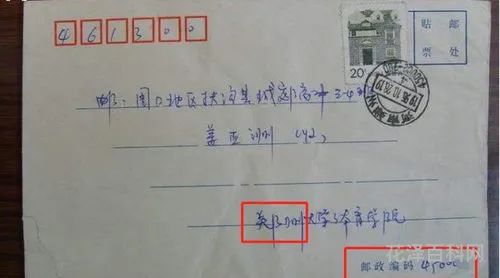 461300
贴 邮
票 处
20
邮:周口地区扶沟县城郊高中三
姜亚洲 (收)
郑州大学体育学院
邮政编码 4500
花泽百科网